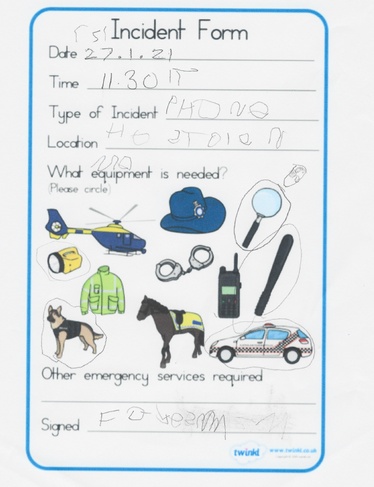 Incident Form
Date 27.1.21
Time 11.30
Type of Incident PHONO
Location
What equipment is needed?
(Please circle)
Other emergency services required
Signed
twinkl www.twinkl.co.uk